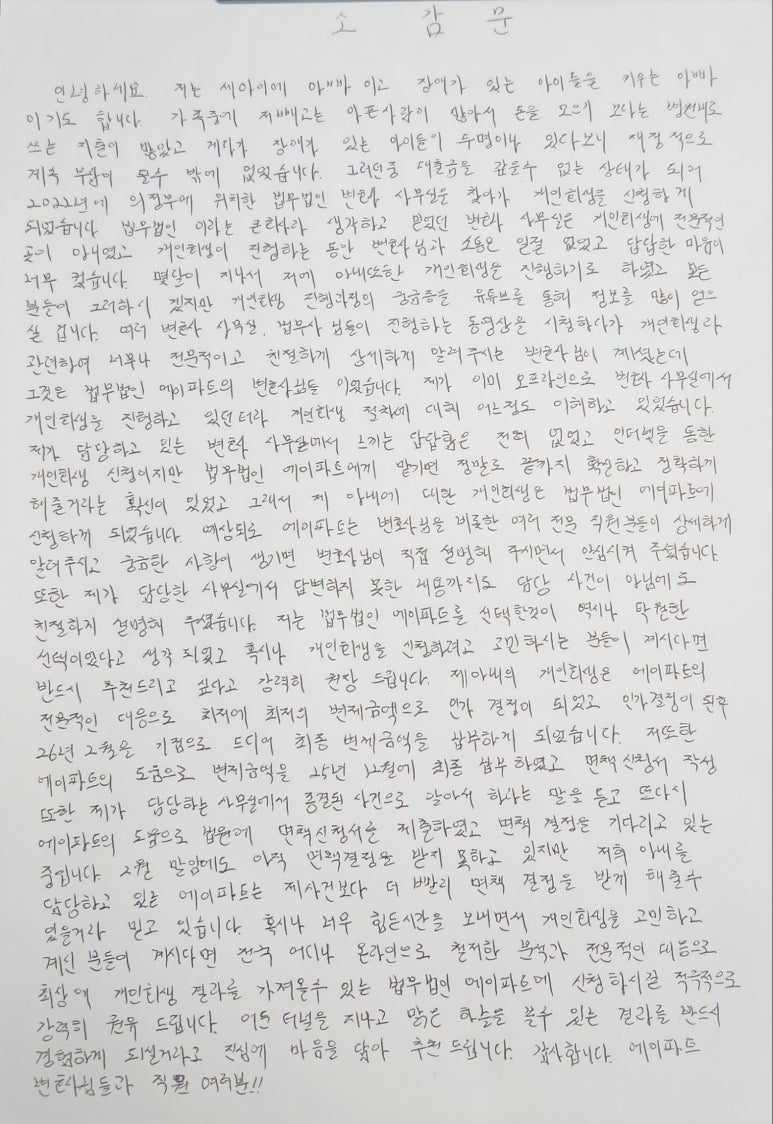 소 감 문
안녕하세요. 저는 세아이에 아빠 이고 장애가 있는 아이들을 키우는 아빠
이기도 합니다. 가족중에 저빼고는 아픈사람이 많아서 돈을 모으기 보다는 병원비로
쓰는 지출이 많았고 게다가 장애가 있는 아이들이 두명이나 있다보니 재정적으로
계속 부담이 될수 밖에 없었습니다. 그러던중 대출금을 갚을수 없는 상태가 되어
2022년에 의정부에 위치한 법무법인 변호사 사무실을 찾아가 개인회생을 신청하게
되었습니다 법무법인 이라는 큰회사라 생각하고 믿었던 변호사 사무실은 개인회생에 전문적인
곳이 아니였고 개인회생이 진행하는 동안 변호사님과 소통은 일절 없었고 답답한 마음이
너무 컸습니다. 몇달이 지나서 저에 아내또한 개인회생을 진행하기로 하였고 모든
분들이 그러하시 겠지만 개인회생 진행과정의 궁금증을 유튜브를 통해 정보를 많이 얻으
실 겁니다. 여러 변호사 사무실, 법무사 님들이 진행하는 동영상을 시청하다가 개인회생과
관련하여 너무나 전문적이고 친절하게 상세하게 알려주시는 변호사님이 계셨는데
그것은 법무법인 에이파트의 변호사님들 이였습니다. 제가 이미 오프라인으로 변호사 사무실에서
개인회생을 진행하고 있던터라 개인회생 절차에 대해 어느정도 이해하고 있었습니다.
제가 담당하고 있는 변호사 사무실에서 느끼는 답답함은 전혀 없었고 인터넷을 통한
개인회생 신청이지만 법무법인 에이파트에게 맡기면 정말로 끝까지 확실하고 정확하게
해줄거라는 확신이 있었고 그래서 제 아내에 대한 개인회생은 법무법인 에이파트에
신청하게 되었습니다. 예상되로 에이파트는 변호사님을 비롯한 여러 전문 직원분들이 상세하게
알려주시고 궁금한 사항이 생기면 변호사님이 직접 설명해 주시면서 안심시켜 주셨습니다.
또한 제가 담당한 사무실에서 답변하지 못한 내용까지도 담당 사건이 아님에도
친절하게 설명해 주셨습니다. 저는 법무법인 에이파트를 선택한것이 역시나 탁월한
선택이였다고 생각 되었고 혹시나 개인회생을 신청하려고 고민하시는 분들이 계시다면
반드시 추천드리고 싶다고 강력히 권장 드립니다. 제아내의 개인회생은 에이파트의
전문적인 대응으로 최저에 최저의 변제금액으로 인가 결정이 되었고 인가결정이 된후
26년 2월을 기점으로 드디어 최종 변제금액을 납부하게 되었습니다. 저또한
에이파트의 도움으로 변제금액을 25년 12월에 최종 납부하였고 면책신청서 작성
또한 제가 담당하는 사무실에서 종결된 사건으로 알아서 하라는 말을 듣고 또다시
에이파트의 도움으로 법원에 면책신청서를 제출하였고 면책 결정을 기다리고 있는
중입니다. 2월 말임에도 아직 면책결정을 받지 못하고 있지만 저희 아내를
담당하고 있는 에이파트는 제사건보다 더 빨리 면책 결정을 받게 해줄수
있을거라 믿고 있습니다. 혹시나 너무 힘든시간을 보내면서 개인회생을 고민하고
계신 분들이 계시다면 전국 어디나 온라인으로 철저한 분석과 전문적인 대응으로
최상에 개인회생 결과를 가져올수 있는 법무법인 에이파트에 신청하시길 적극적으로
강력히 권유 드립니다. 어둔 터널을 지나고 맑은 하늘을 볼수 있는 결과를 반드시
경험하게 되실거라고 진심에 마음을 담아 추천 드립니다. 감사합니다. 에이파트
변호사님들과 직원 여러분!!